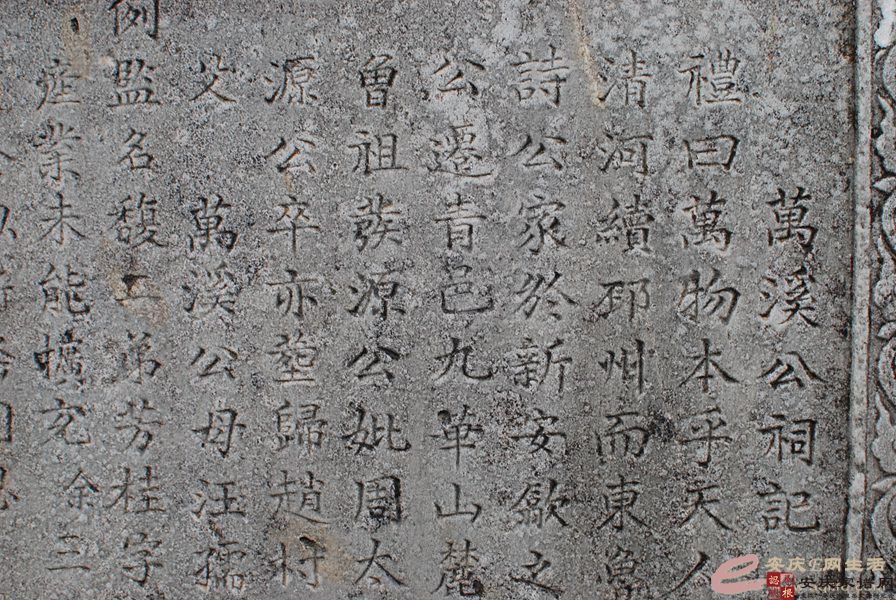 萬溪公祠記
禮曰萬物本乎天人
清河續邳州而東魯
詩公家於新安歙之
公遷青邑九華山麓
曾祖發源公妣周太
源公卒亦塟歸趙村
父 萬溪公母汪孺
例監名馥二弟芳桂字
產業未能擴充余三
安庆E网生活